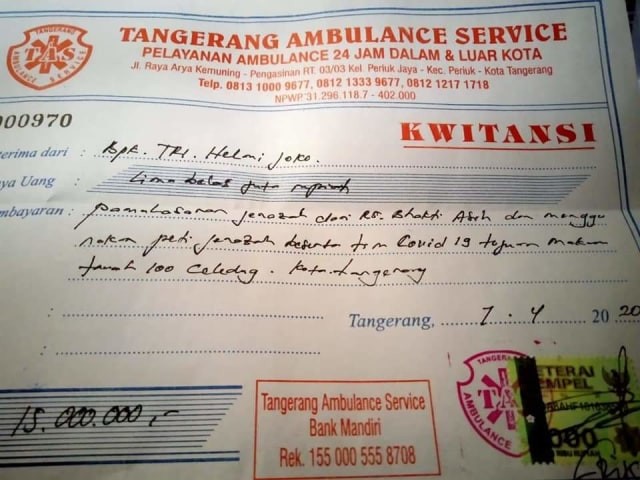 TANGERANG
TAS
AMBULANCE SERVICE
TANGERANG AMBULANCE SERVICE
PELAYANAN AMBULANCE 24 JAM DALAM & LUAR KOTA
Jl. Raya Arya Kemuning - Pengasinan RT. 03/03 Kel. Periuk Jaya - Kec. Periuk - Kota Tangerang
Telp. 0813 1000 9677, 0812 1333 9677, 0812 1217 1718
NPWP 31.296.118.7 - 402.000
000970
KWITANSI
erima dari : Bpk. TRI. Helmi Joko.
ya Uang : Lima belas juta rupiah
mbayaran : pemulasaran jenazah dari RS. Bhakti Asih dan menggu
nakan peti jenazah beserta tim Covid 19 tujuan makam
tanah 100 Ciledug. Kota tangerang
Tangerang, 7 - 4 2020
15.000.000,-
Tangerang Ambulance Service
Bank Mandiri
Rek. 155 000 555 8708
TAS
AMBULANCE
ETERAI
EMPEL
000